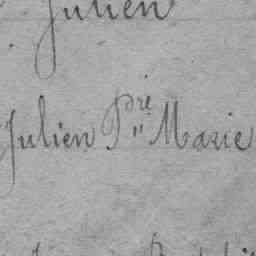 Julien
Julien Pre Marie